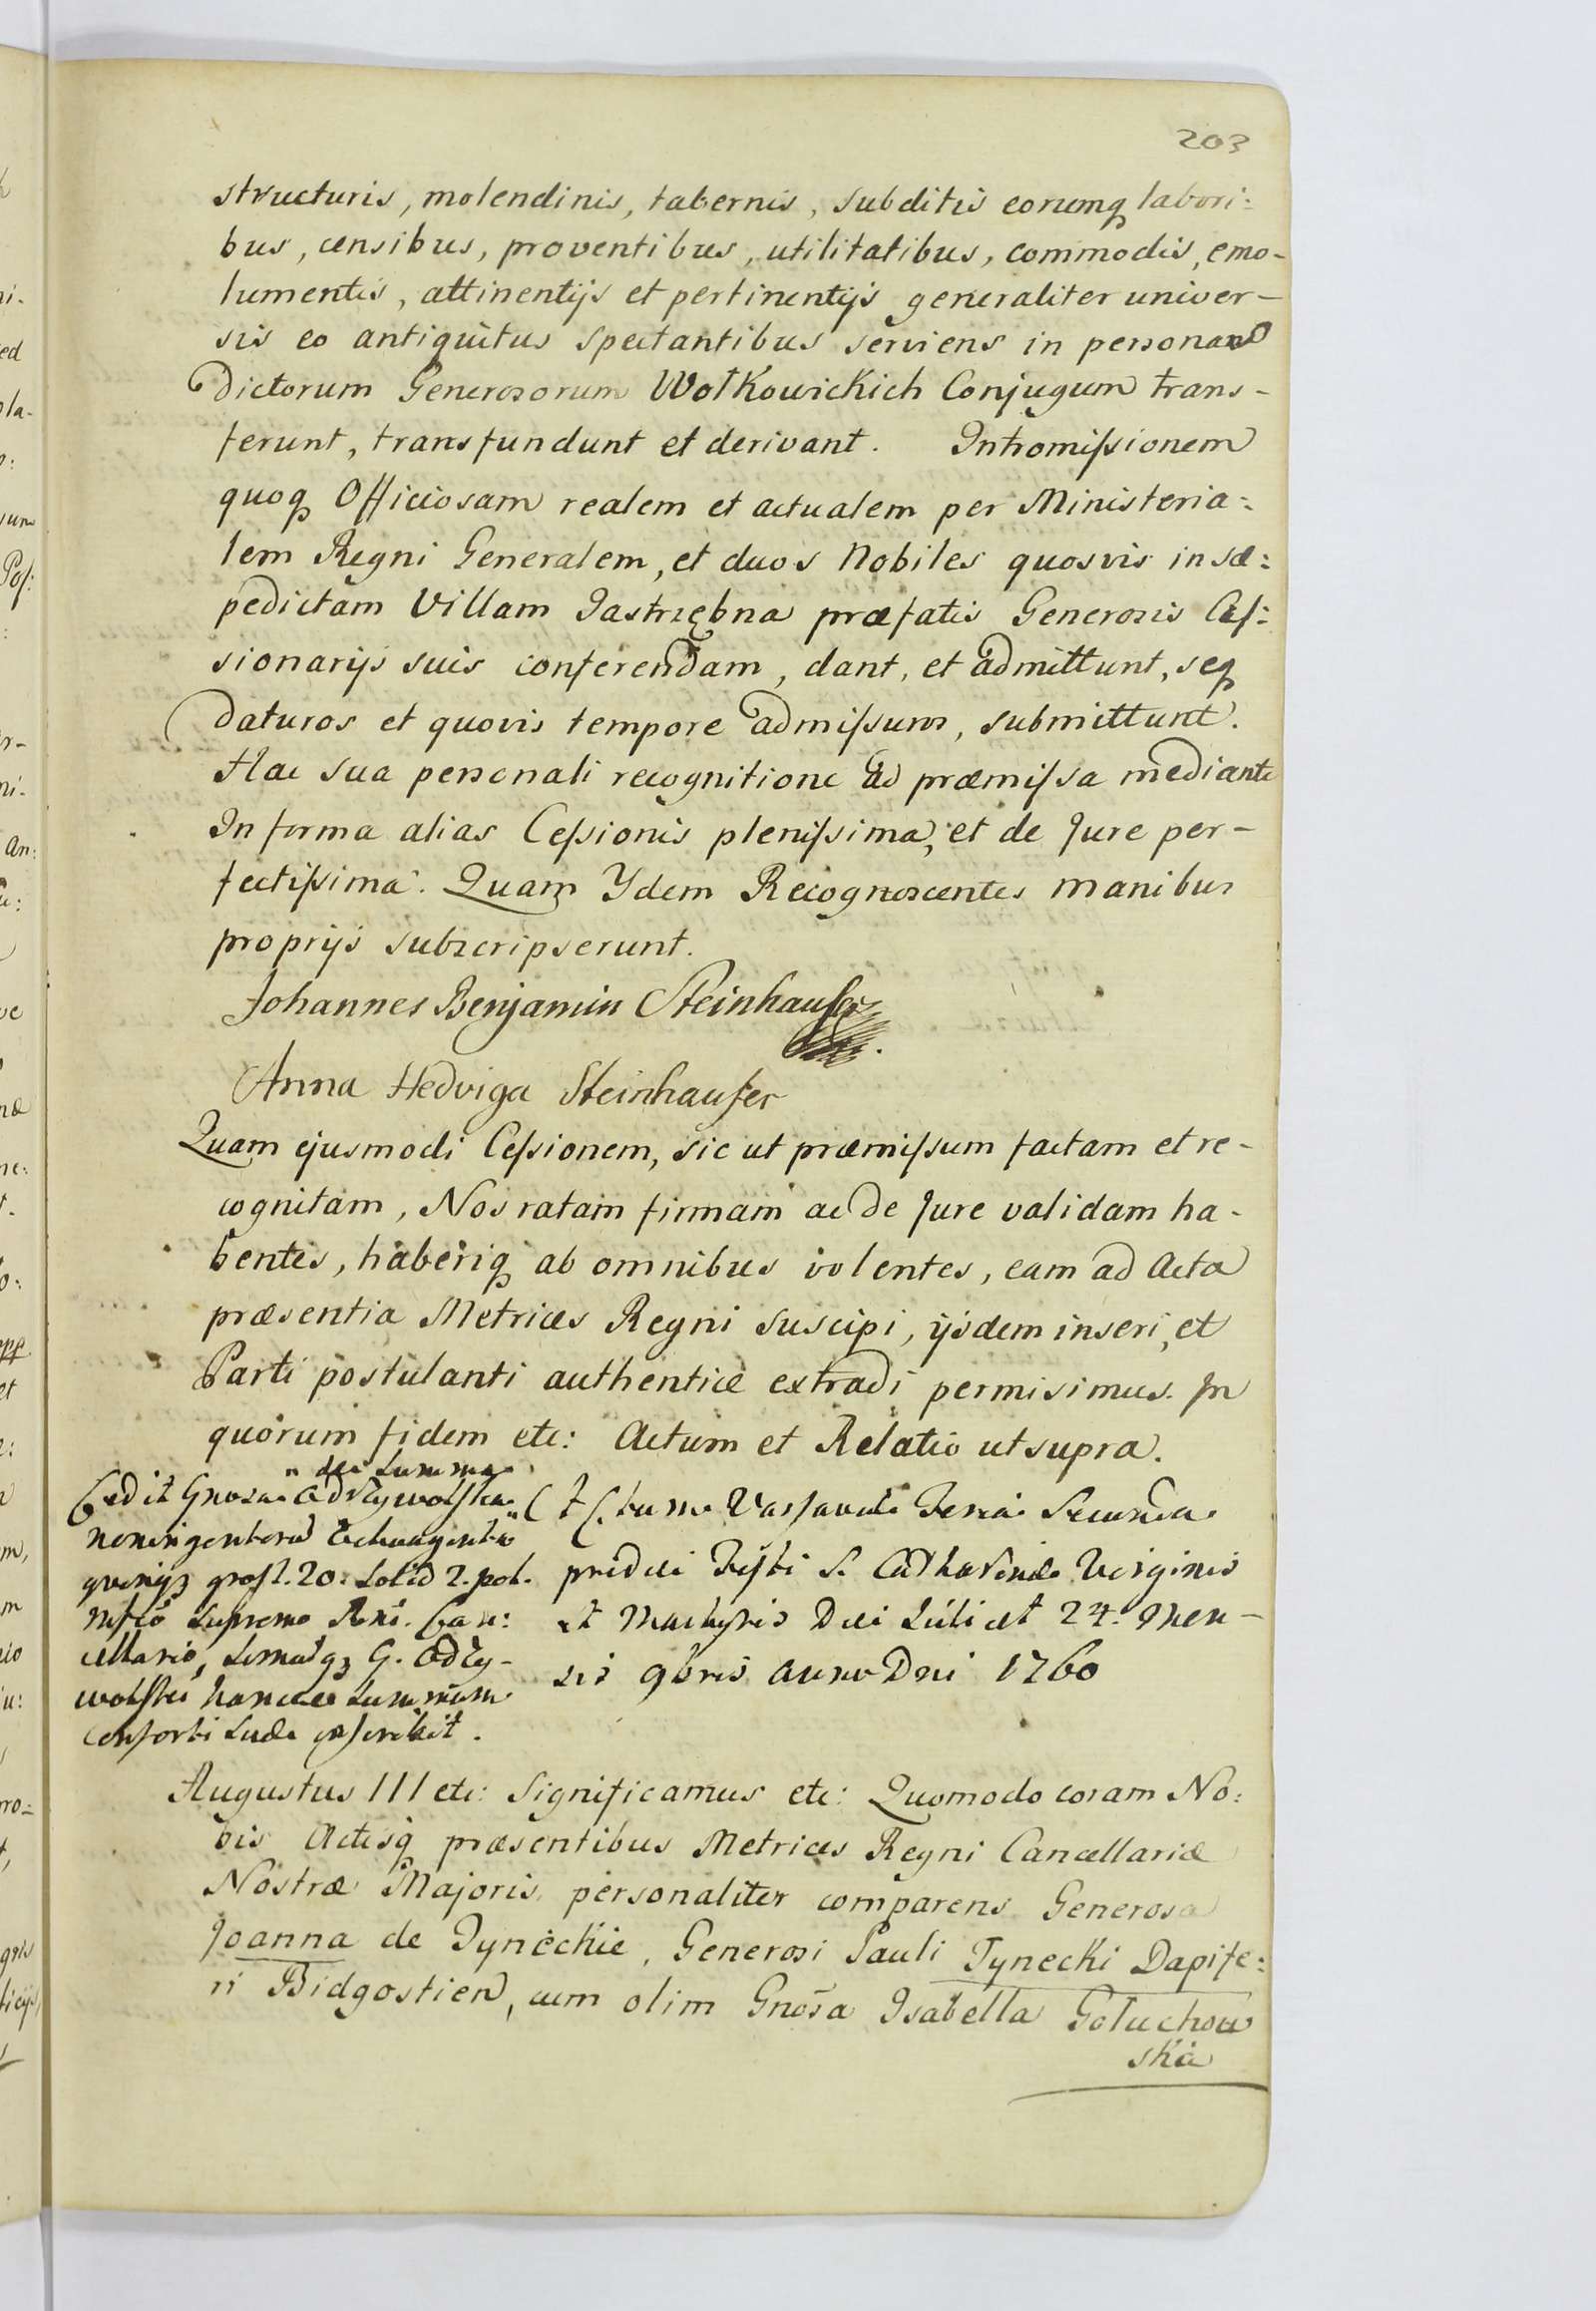 203
structuris, molendinis, tabernis, subditis eorumq labori:
bus, censibus, proventibus, utilitatibus, commodis, emo-
lumentis, attinentijs et pertinentijs generaliter univer-
sis eo antiquitus spectantibus serviens in personas
dictorum Generosorum Wołkowickich Conjugum trans-
ferunt, transfundunt et derivant. Intromissionem
quoq Officiosam realem et actualem per Ministeria:
lem Regni Generalem, et duos Nobiles quosvis in sæ:
pedictam Villam Jastrzębna præfatis Generosis Ces:
sionarijs suis conferendam, dant, et admittunt, seq
daturos et quovis tempore admissuros, submittunt.
Hac sua personali recognitione ad præmissa mediante
In forma alias Cessionis plenissima, et de Jure per-
fectissima. Quam Ydem Recognoscentes manibus
proprijs subscripserunt.
Johannes Benjamin Steinhauser
Anna Hedviga Steinhauser
Quam ejusmodi Cessionem, sic ut præmissum factam et re-
cognitam, Nos ratam firmam ac de Jure validam ha-
bentes, haberiq ab omnibus volentes, eam ad Acta
præsentia Metrices Regni suscipi, ijsdem inseri, et
Parti postulanti authentice extradi permisimus. In
quorum fidem etc: Actum et Relatio ut supra.
Cedit Gnosa Odrzywolska
de Summa
noningentorum
grosz. 20. Solid 2. pol.
Supremo Rni. Can:
cellario, G. Odrzy-
wolski hancce Summam
Consorti Suæ
Actum Varsaviæ Feria Secunda
pridie Festi S. Catharinæ Virginis
et Martyris Die Scilicet 24. Men-
sis 9bris Anno Dni 1760
Augustus III etc: Significamus etc: Quomodo coram No:
bis Actisq præsentibus Metrices Regni Cancellariæ
Nostræ Majoris personaliter comparens Generosa
Joanna de Tyneckie, Generosi Pauli Tynecki Dapife:
ri Bidgostien, cum olim Gnosa Isabella Gołuchow
ska